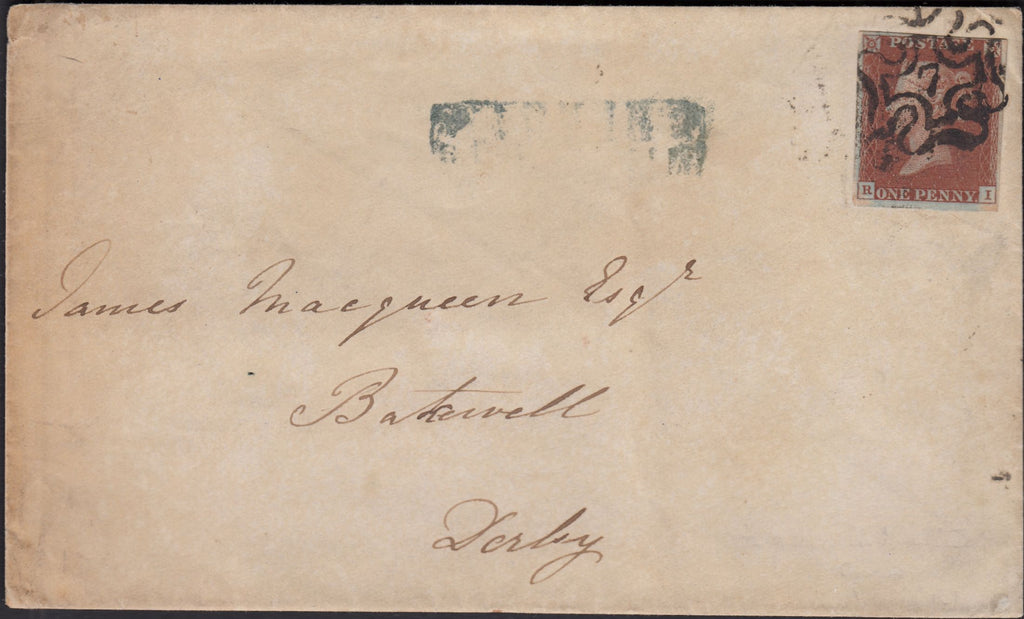 POSTAGE
7
R ONE PENNY I
James Macqueen Esqr
Bakewell
Derby